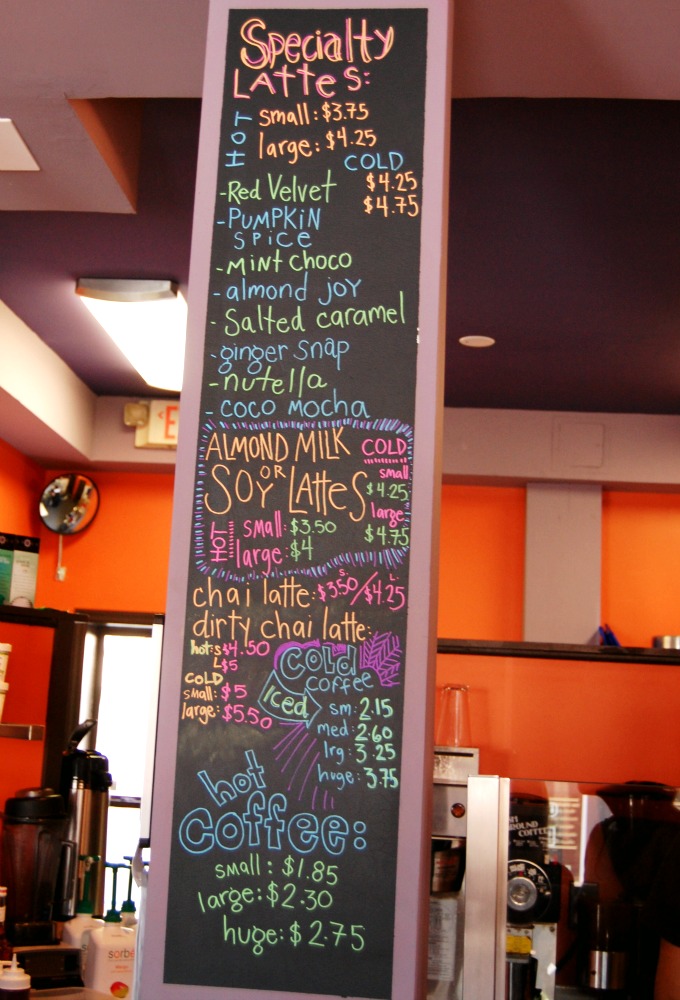 Specialty
LATTES:
HOT
small: $3.75
large: $4.25
COLD
$4.25
$4.75
-Red Velvet
-PUMPKIN
SPICE
-MINT CHOCO
-almond joy
-Salted caramel
-ginger snap
-nutella
-coco mocha
ALMOND MILK
OR
SOY LATTES
COLD
small
$4.25
large
$4.75
HOT
small: $3.50
large: $4
S. L.
chai latte: $3.50/$4.25
dirty chai latte:
hot: S $4.50
L $5
COLD
small: $5
large: $5.50
Cold
coffee
Iced
sm: 2.15
med: 2.60
lrg: 3.25
huge: 3.75
hot
coffee:
small: $1.85
large: $2.30
huge: $2.75
E
sorbe
ROUND
COFFEE